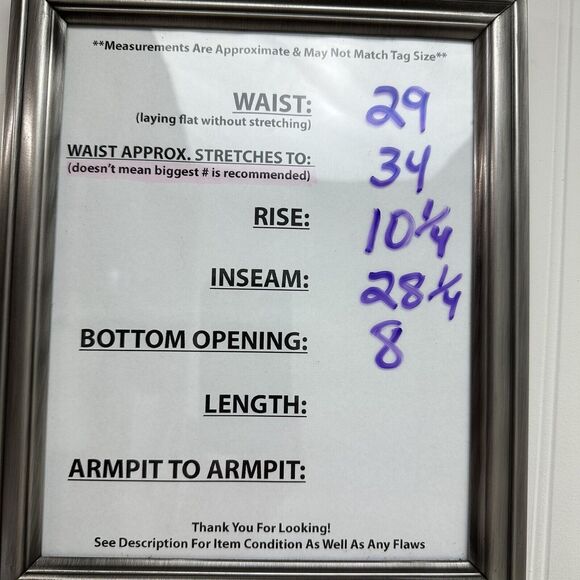 **Measurements Are Approximate & May Not Match Tag Size**
WAIST: 29
(laying flat without stretching)
WAIST APPROX. STRETCHES TO: 34
(doesn't mean biggest # is recommended)
RISE: 10 1/4
INSEAM: 28 1/4
BOTTOM OPENING: 8
LENGTH:
ARMPIT TO ARMPIT:
Thank You For Looking!
See Description For Item Condition As Well As Any Flaws